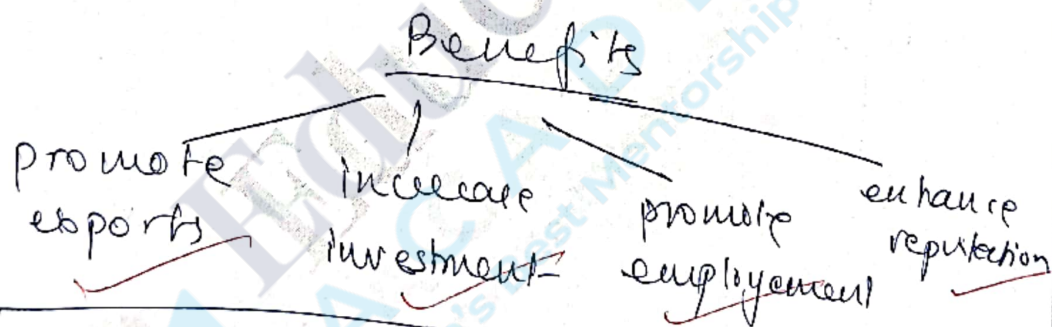 Benefits
promote
exports
increase
investment
promote
employement
enhance
reputection